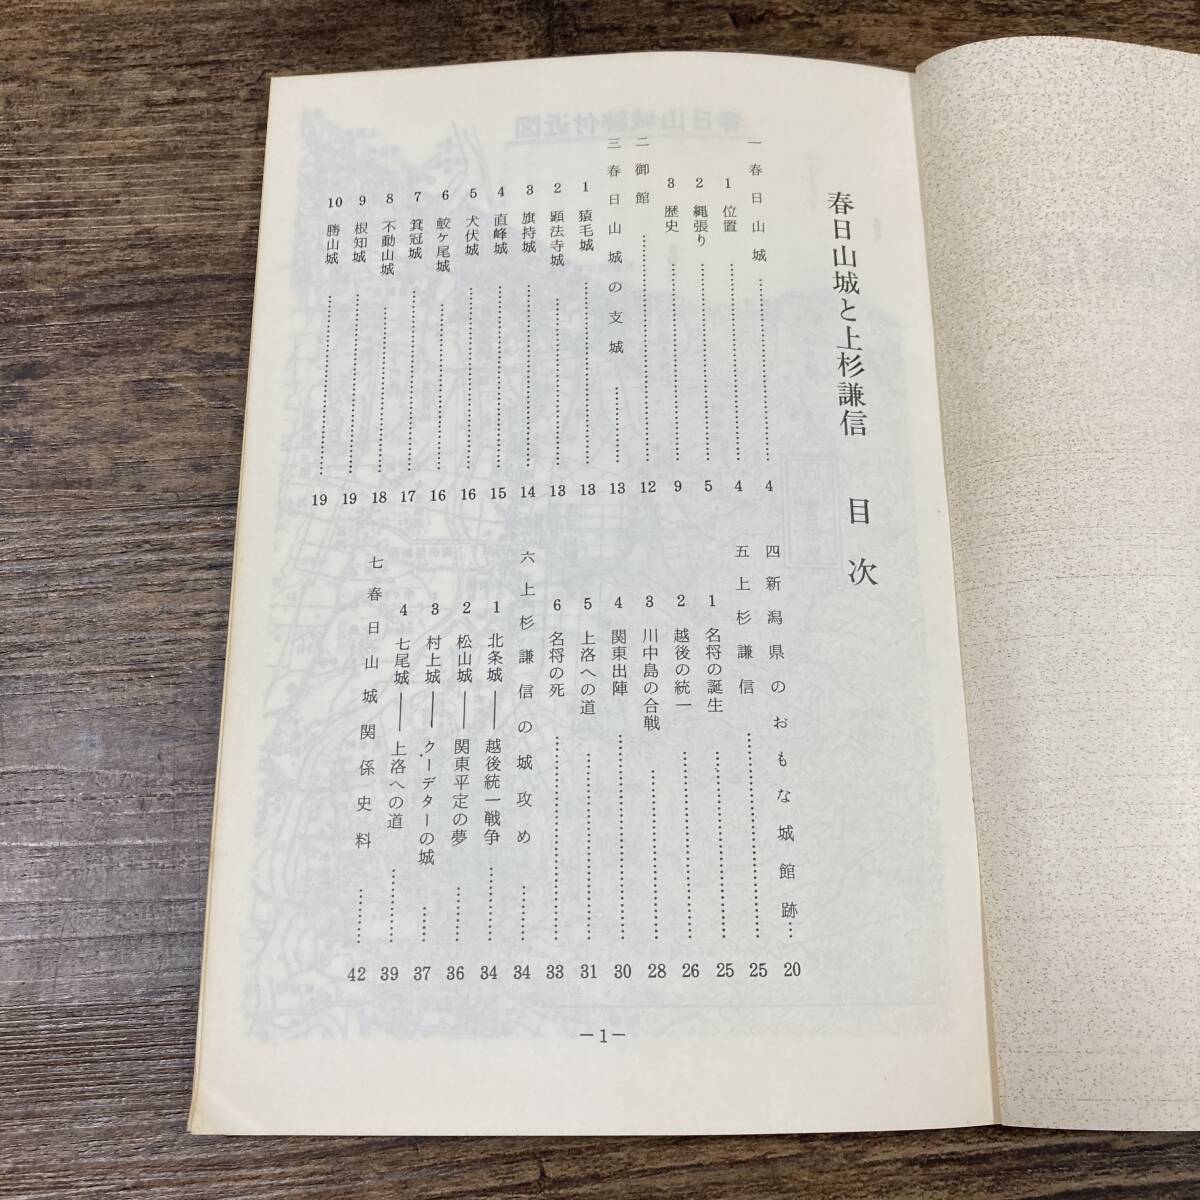 春日山城と上杉謙信　目次
一 春日山城 …… 4
1 位置 …… 4
2 縄張り …… 5
3 歴史 …… 9
二 御館 …… 12
三 春日山城の支城 …… 13
1 猿毛城 …… 13
2 顕法寺城 …… 13
3 旗持城 …… 14
4 直峰城 …… 15
5 犬伏城 …… 16
6 鮫ケ尾城 …… 16
7 箕冠城 …… 17
8 不動山城 …… 18
9 根知城 …… 19
10 勝山城 …… 19
四 新潟県のおもな城館跡 …… 20
五 上杉謙信 …… 25
1 名将の誕生 …… 25
2 越後の統一 …… 26
3 川中島の合戦 …… 28
4 関東出陣 …… 30
5 上洛への道 …… 31
6 名将の死 …… 33
六 上杉謙信の城攻め …… 34
1 北条城――越後統一戦争 …… 34
2 松山城――関東平定の夢 …… 36
3 村上城――クーデターの城 …… 37
4 七尾城――上洛への道 …… 39
七 春日山城関係史料 …… 42
－1－
春日山城跡付近図